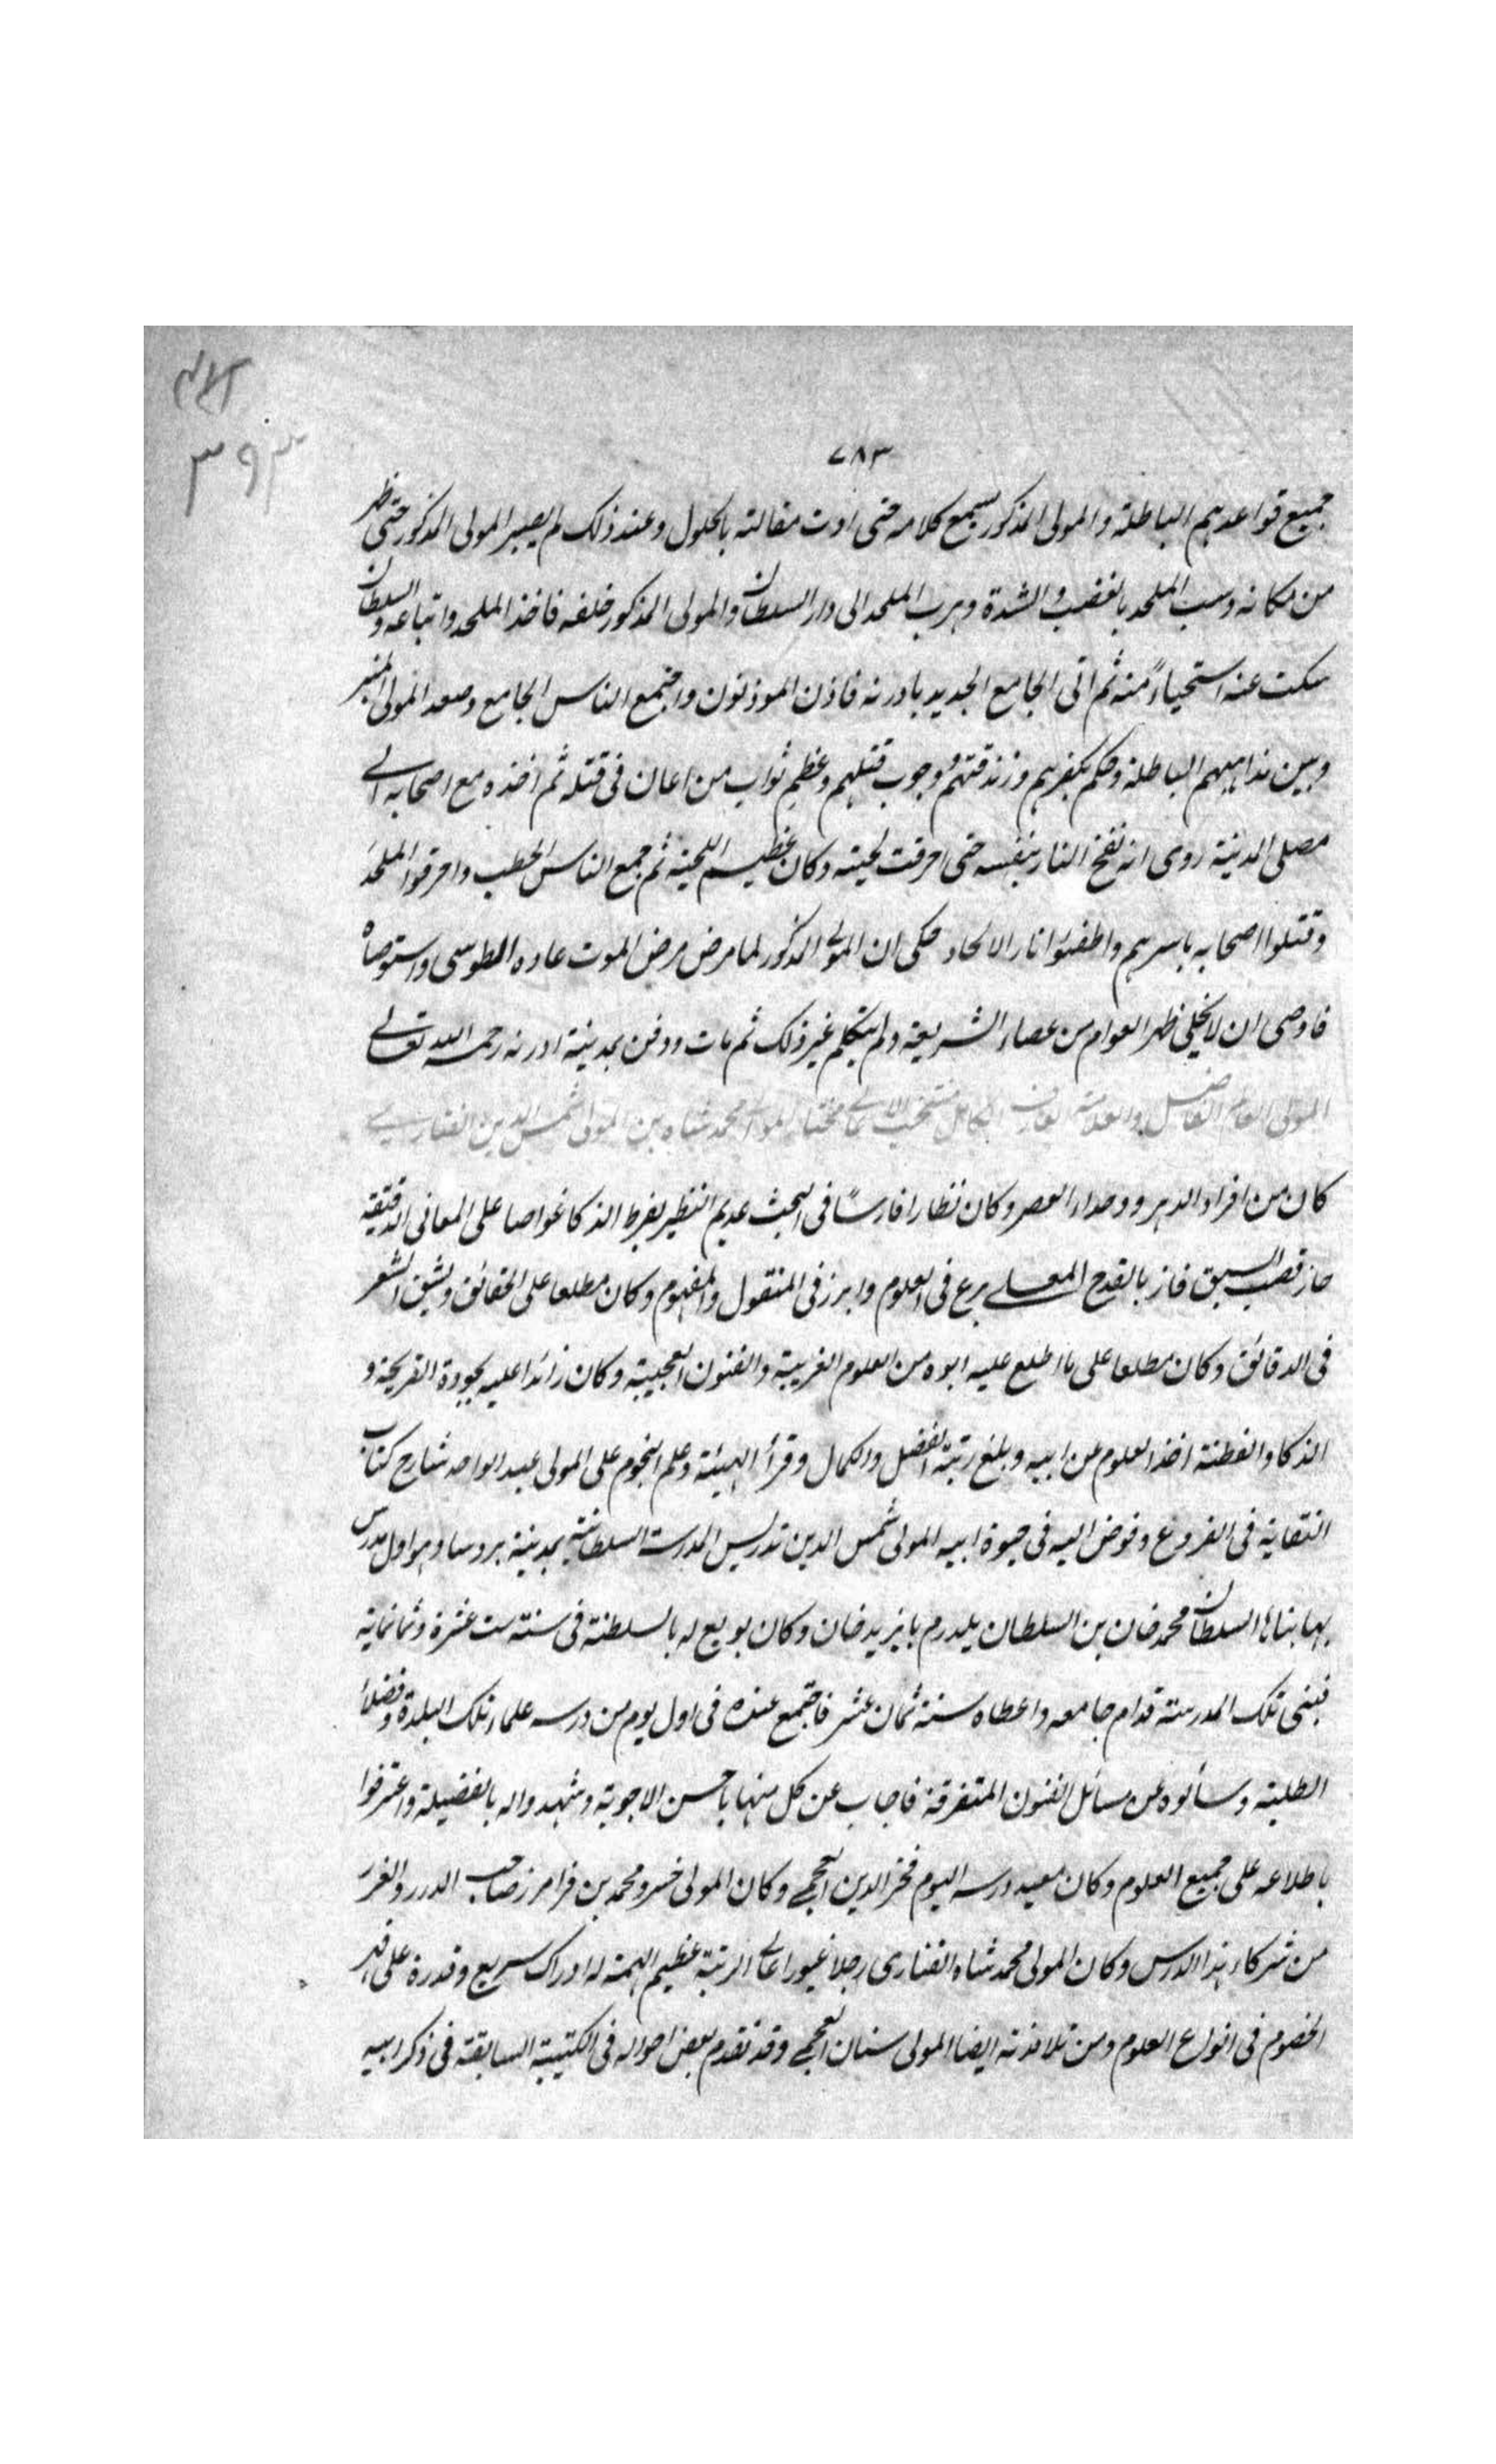 ٧٨٣
جميع قواعدهم الباطلة والمولى المذكور يسمع كلامه حتى ادت مقالته بالحلول وعند ذلك لم يصبر المولى المذكور حتى ظهر
من مكانه وسب الملحد بالغضب والشدة وهرب الملحد الى دار السلطان والمولى المذكور خلفه فاخذ الملحد واتباعه والسلطان
سكت عنه استحياءً منه ثم اتى الجامع الجديد بادرنه فاذن الموذنون واجتمع الناس الجامع وصعد المولى المنبر
وبين مذاهبهم الباطلة وحكم بكفرهم وزندقتهم ووجوب قتلهم وعظم ثواب من اعان فى قتله ثم اخذه مع اصحابه الى
مصلى المدينة روى انه نفخ النار بنفسه حتى احرقت لحيته وكان عظيم اللحية ثم جمع الناس الحطب واحرقوا الملحد
وقتلوا اصحابه باسرهم واطفئوا نار الالحاد حكى ان المولى المذكور لما مرض مرض الموت عاده الطوسى واستوصاه
فاوصى ان لا يخلى ظهر العوام من عصاء الشريعة ولم يتكلم غير ذلك ثم مات ودفن بمدينة ادرنه رحمه الله تعالى
المولى العالم الفاضل والعلامة العارف الكامل منتخب الاعالى مختار الموالى محمد شاه بن المولى شمس الدين الفنارى
كان من افراد الدهر ووحداء العصر وكان نظارا فارسًا فى البحث عديم النظير بفرط الذكا غواصا على المعانى الدقيقة
حاز قصب السبق فاز بالقدح المعلى برع فى العلوم وابرز فى المنقول والمفهوم وكان مطلعا على الحقائق ويشق الشعر
فى الدقائق وكان مطلعا على ما اطلع عليه ابوه من العلوم الغريبة والفنون العجيبة وكان زائدا عليه بجودة القريحة و
الذكا والفطنة اخذ العلوم عن ابيه وبلغ رتبة الفضل والكمال وقرأ الهيئة وعلم النجوم على المولى عبد الواحد شارح كتاب
النقاية فى الفروع وفوض اليه فى حيوة ابيه المولى شمس الدين تدريس المدرسة السلطانية بمدينة بروسا وهو اول مدرس
بها بناها السلطان محمد خان بن السلطان يلدرم بايزيد خان وكان بويع له بالسلطنة فى سنة ست عشرة وثمانماية
فبنى تلك المدرسة قدام جامعه واعطاه سنة ثمان عشر فاجتمع عنده فى اول يوم من درسه علماء تلك البلدة وفضلاء
الطلبة وسألوه عن مسائل الفنون المتفرقة فاجاب عن كل منها باحسن الاجوبة وشهدوا له بالفضيلة واعترفوا
باطلاعه على جميع العلوم وكان معيد درسه اليوم فخر الدين العجمى وكان المولى خسرو محمد بن فرامرز صاحب الدرر والغرر
من شركاء هذا الدرس وكان المولى محمد شاه الفنارى رجلا غيورا عالى الرتبة عظيم الهمة له ادراك سريع وقدرة على
الخصوم فى انواع العلوم ومن تلامذته ايضا المولى سنان العجمى وقد تقدم بعض احواله فى الكتيبة السابقة فى ذكر ابيه